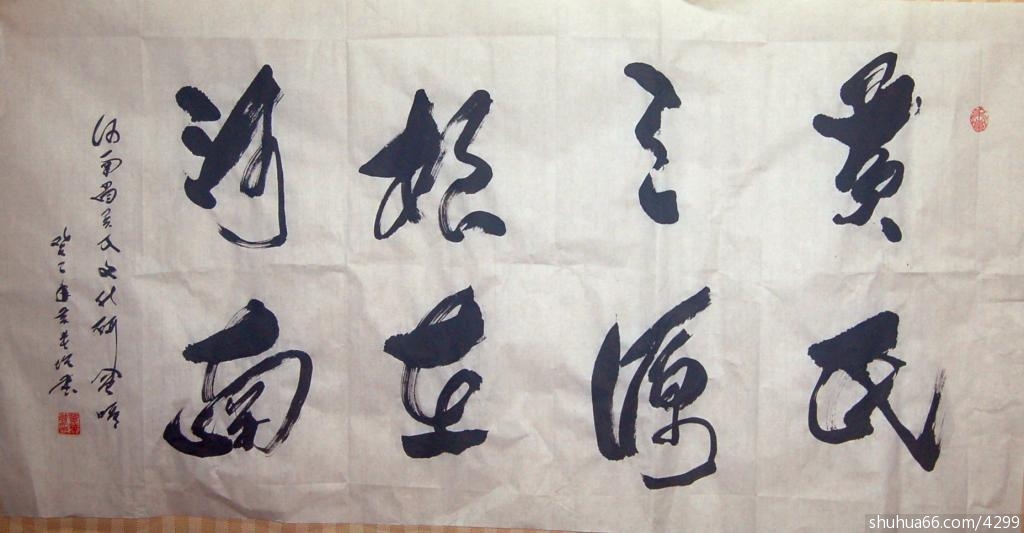 黄氏
之源
根在
河南
河南省黄氏文化研究会嘱
shuhua66.com/4299